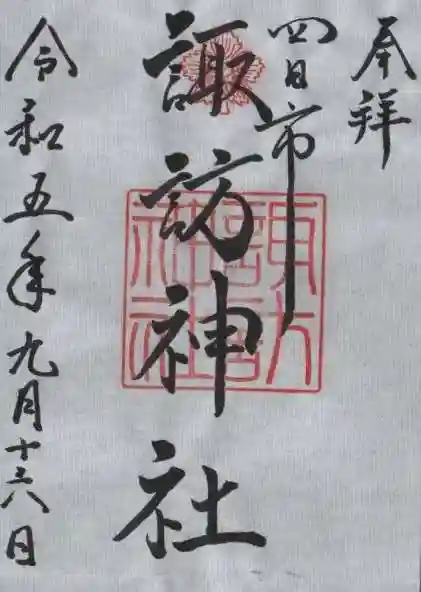 奉拝
四日市
諏訪神社
令和五年九月十六日
諏訪神社